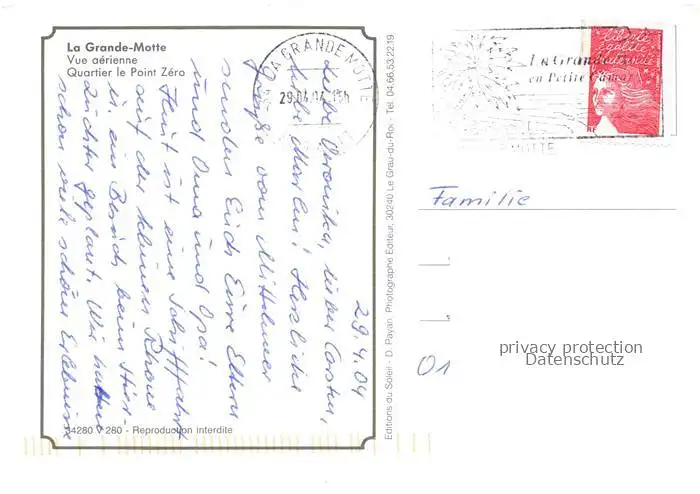 La Grande-Motte
Vue aérienne
Quartier le Point Zéro
29.4.04
Liebe Veronika, lieber Carsten,
liebe Marlen! Herzliche
Grüße vom Mittelmeer
senden Euch Eure Eltern
und Oma und Opa!
Heut ist eine Schifffahrt
auf der kleinen Rhone
u. ein Besuch beim Stier-
züchter geplant. Wir hatten
schon viele schöne Erlebnisse
34280 280 - Reproduction interdite
Editions du Soleil - D. Payan, Photographe Editeur, 30240 Le Grau-du-Roi - Tel. 04.66.53.22.19
LA GRANDE MOTTE
29.04.04
La Grande
en Petite Camargue
MOTTE
liberté
égalité
fraternité
RF
Familie
01
privacy protection
Datenschutz